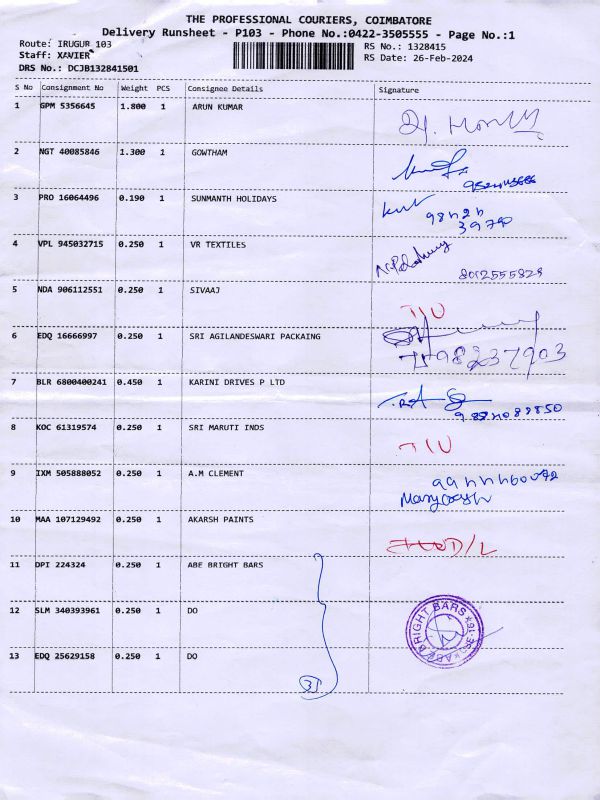 THE PROFESSIONAL COURIERS, COIMBATORE
Delivery Runsheet - P103 - Phone No.:0422-3505555 - Page No.:1
Route: IRUGUR 103 RS No.: 1328415
Staff: XAVIER RS Date: 26-Feb-2024
DRS No.: DCJB132841501
S No Consignment No Weight PCS Consignee Details Signature
1 GPM 5356645 1.800 1 ARUN KUMAR
2 NGT 40085846 1.300 1 GOWTHAM
3 PRO 16064496 0.190 1 SUNMANTH HOLIDAYS
4 VPL 945032715 0.250 1 VR TEXTILES
8012555829
5 NDA 906112551 0.250 1 SIVAAJ
T/U
6 EDQ 16666997 0.250 1 SRI AGILANDESWARI PACKAING
7 BLR 6800400241 0.450 1 KARINI DRIVES P LTD
8 KOC 61319574 0.250 1 SRI MARUTI INDS
T/U
9 IXM 505888052 0.250 1 A.M CLEMENT
10 MAA 107129492 0.250 1 AKARSH PAINTS
D/L
11 DPI 224324 0.250 1 ABE BRIGHT BARS
12 SLM 340393961 0.250 1 DO
ABE BRIGHT BARS
13 EDQ 25629158 0.250 1 DO